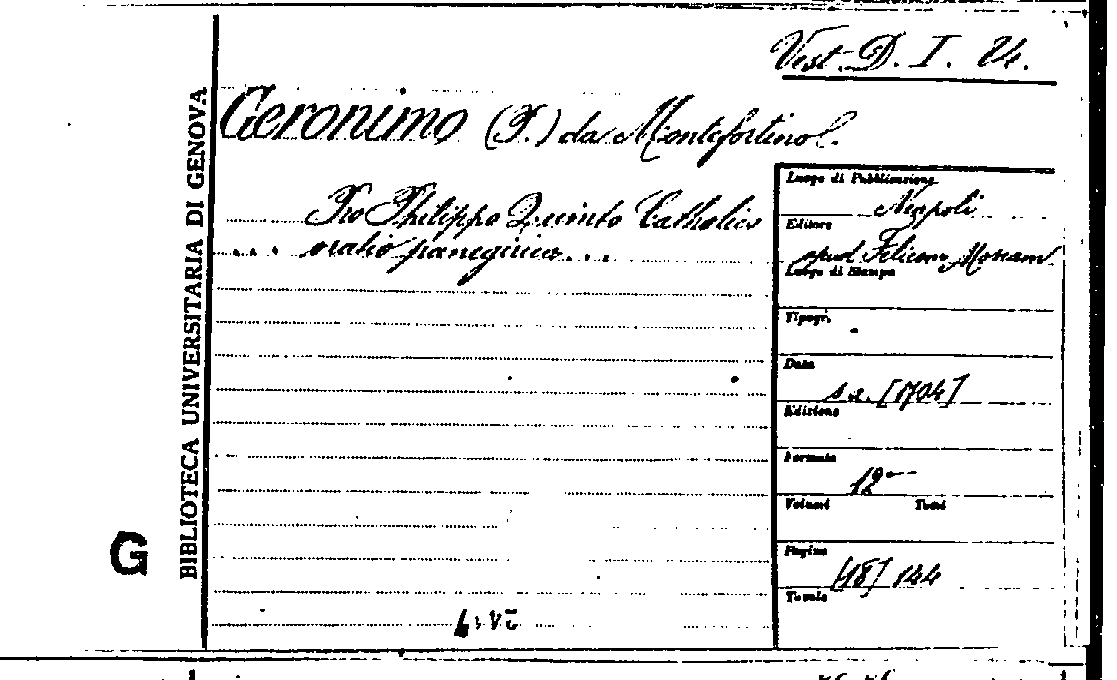 Vest. D. I. 24.
Geronimo (F.) da Montefortino.
Pro Philippo Quinto Catholico
.... oratio panegirica...
BIBLIOTECA UNIVERSITARIA DI GENOVA
G
Luogo di Pubblicazione
Napoli
Editore
apud Felicem Moscam
Luogo di Stampa
Tipogr.
Data
s.a. [1704]
Edizione
Formato
12°
Volumi Tomi
Pagine
[18] 144
Tavole